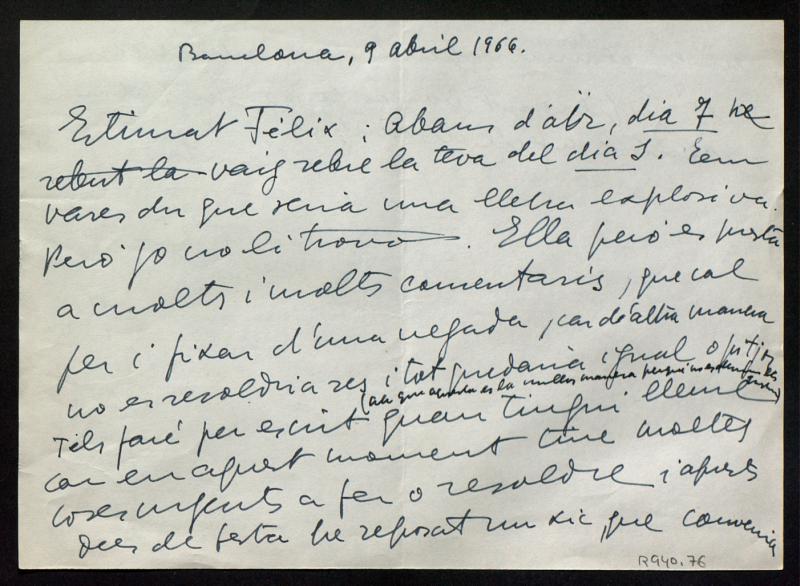 Barcelona, 9 abril 1966.
Estimat Fèlix: Abans d'aïr, dia 7 he
rebut la vaig rebre la teva del dia 5. Em
vares dir que seria una lletra explosiva.
Però jo no li trovo. Ella però es presta
a molts i molts comentaris, que cal
fer i fixar d'una vegada, car d'altra manera
no es resoldria res i tot quedaria igual o pitjor
(ja que aquesta es la millor manera perquè no
Te'ls faré per escrit quan tingui lleure
car en aquest moment tinc moltes
coses urgents a fer o resoldre i aquests
dies de festa he reposat un xic, que convenia
R940.76